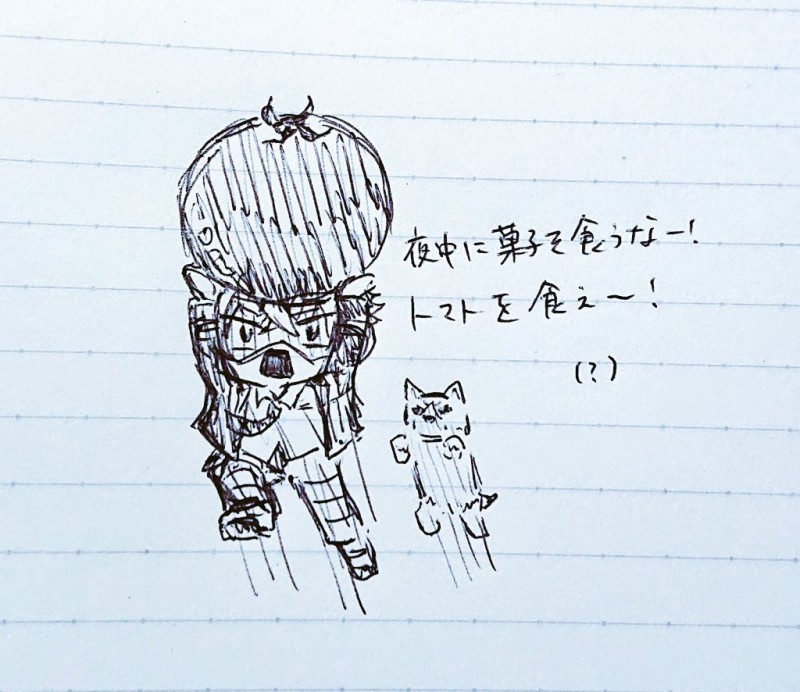 夜中に菓子を食うなー!
トマトを食え〜!
(?)